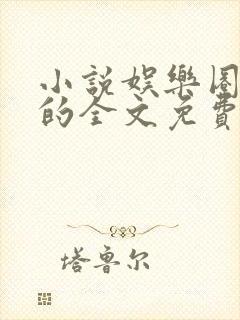 小說娛樂圈
的全文免費
塔鲁尔